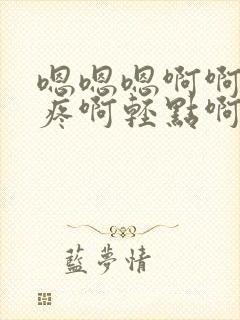 嗯嗯嗯啊啊
疼啊輕點啊
藍夢情